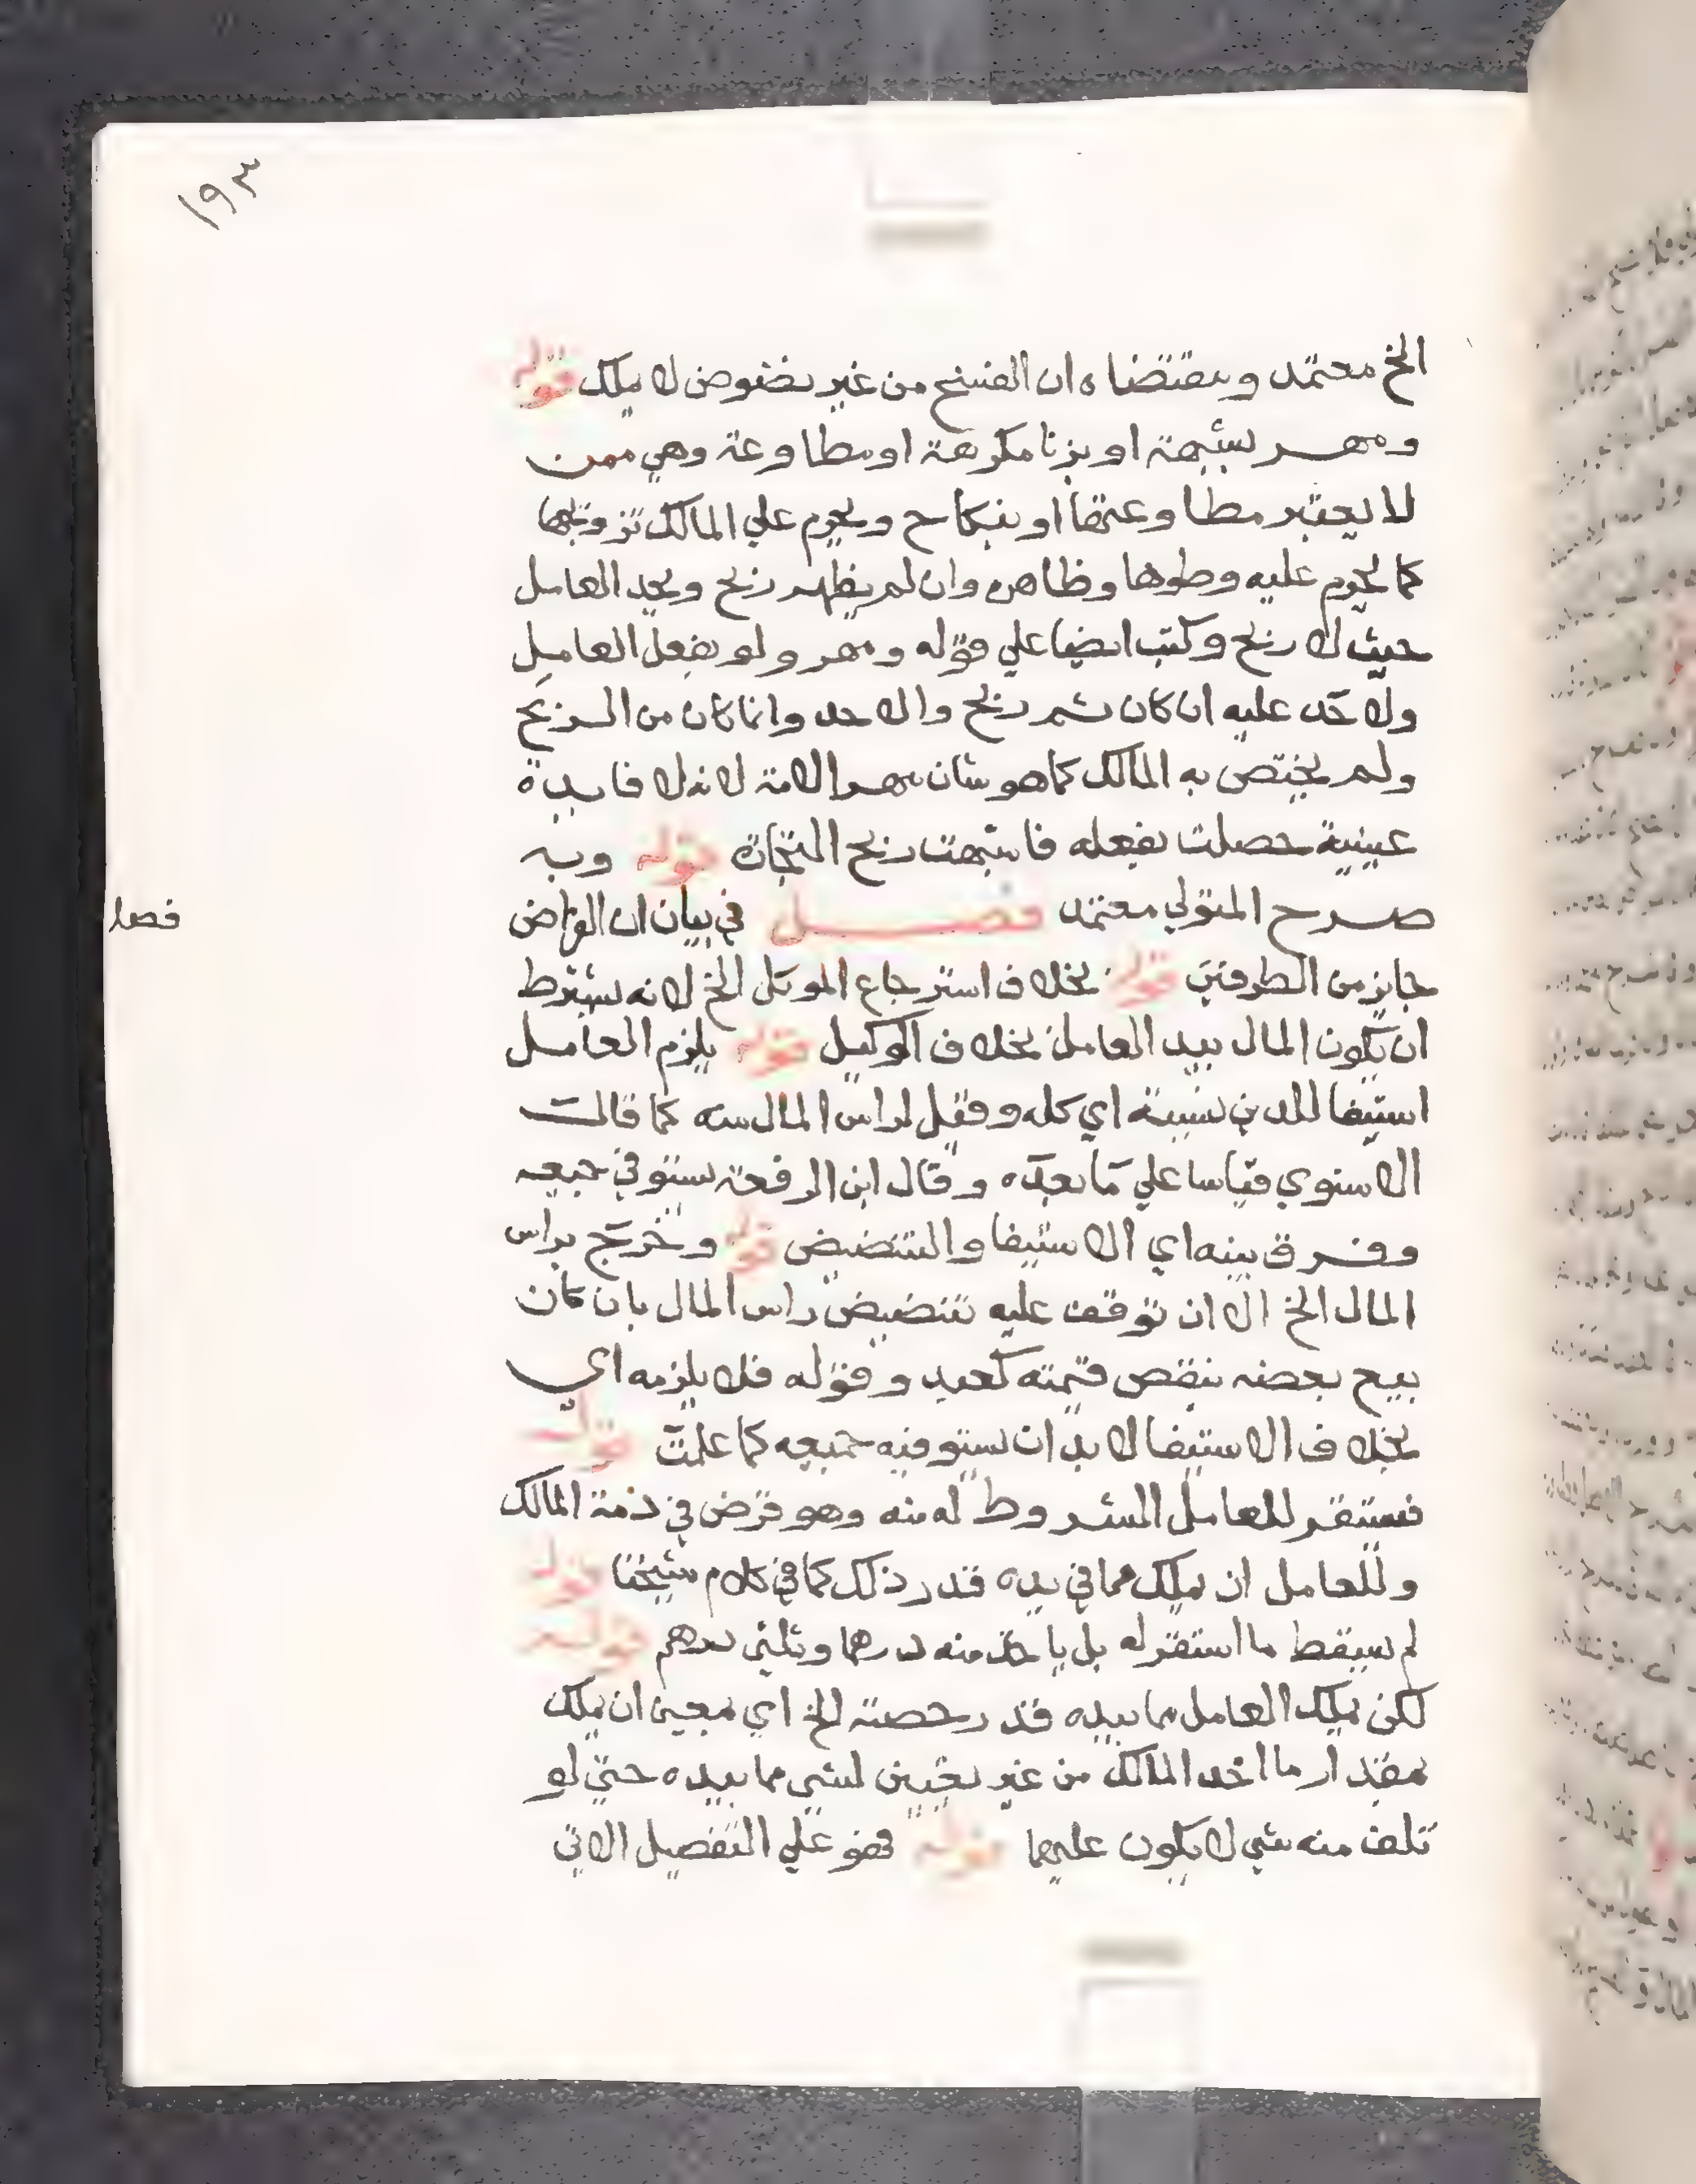 ١٩٣
الخ معتمد ومقتضاه ان الفسخ من غير نضوض لا يملك قوله
ومهر بشبهة او بزنا مكرهة او مطاوعة وهي ممن
لا يعتبر مطاوعتها او بنكاح ويحرم علي المالك تزويجها
كما يحرم عليه وطوها وظاهره وان لم يظهر ربح ويحد العامل
حيث لا ربح وكتب ايضا علي قوله ومهر ولو بفعل العامل
ولا حد عليه ان كان ثم ربح والا حد وانما كان من الربح
ولم يختص به المالك كما هو شان مهر الامة لانه لا فايدة
عينية حصلت بفعله فاشبهت ربح التجاة قوله وبه
صرح المتولي معتمد فصل في بيان ان القراض
فصل
جايز من الطرفين قوله بخلاف استرجاع الموكل الخ لانه يشترط
ان يكون المال بيد العامل بخلاف الوكيل قوله يلزم العامل
استيفا للدين نسيئة اي كله وقيل لراس المال منه كما قالت
الاسنوي قياسا علي ما بعده وقال ابن الرفعة يستوفي جميعه
وفرق بينه اي الاستيفا والتنضيض قوله وخرج براس
المال الخ الا ان توقف عليه تنضيض راس المال بان كان
بيع بعضه ينقص قيمته كعبد وقوله فلا يلزمه اي
بخلاف الاستيفا لا بد ان يستوفيه جميعه كما علمت قوله
فيستقر للعامل المشروط له منه وهو قرض في ذمة المالك
وللعامل ان يملك مما في يده قدر ذلك كما في كلام شيخنا قوله
لم يسقط ما استقر له بل ياخذ منه درهما وثلثي درهم قوله
لكن يملك العامل مما بيده قدر حصته الخ اي بمعني ان يملك
بمقدار ما اخد المالك من غير تعيين لشي مما بيده حتي لو
تلف منه شي لا يكون عليهما قوله فهو علي التفصيل الاتي